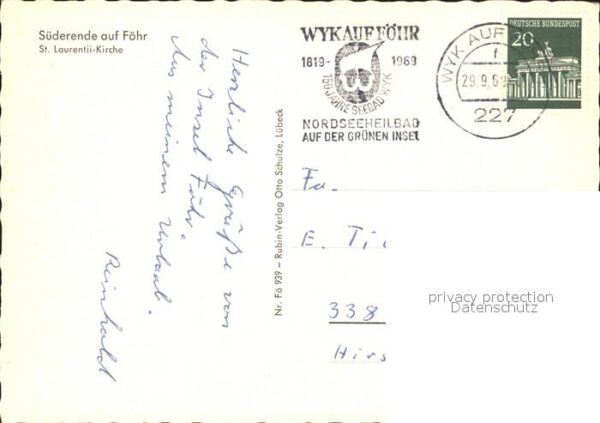 Süderende auf Föhr
St. Laurentii-Kirche
Herzliche Grüße von
der Insel Föhr.
Aus meinem Urlaub.
Reinhold
Nr. Fö 939 – Rubin-Verlag Otto Schulze, Lübeck
WYK AUF FÖHR
1819- 1969
150 JAHRE SEEBAD WYK
NORDSEEHEILBAD
AUF DER GRÜNEN INSEL
WYK AUF
f
29.9.6
227
DEUTSCHE BUNDESPOST
20
Fa.
E. Ti
338
Hirs
privacy protection
Datenschutz